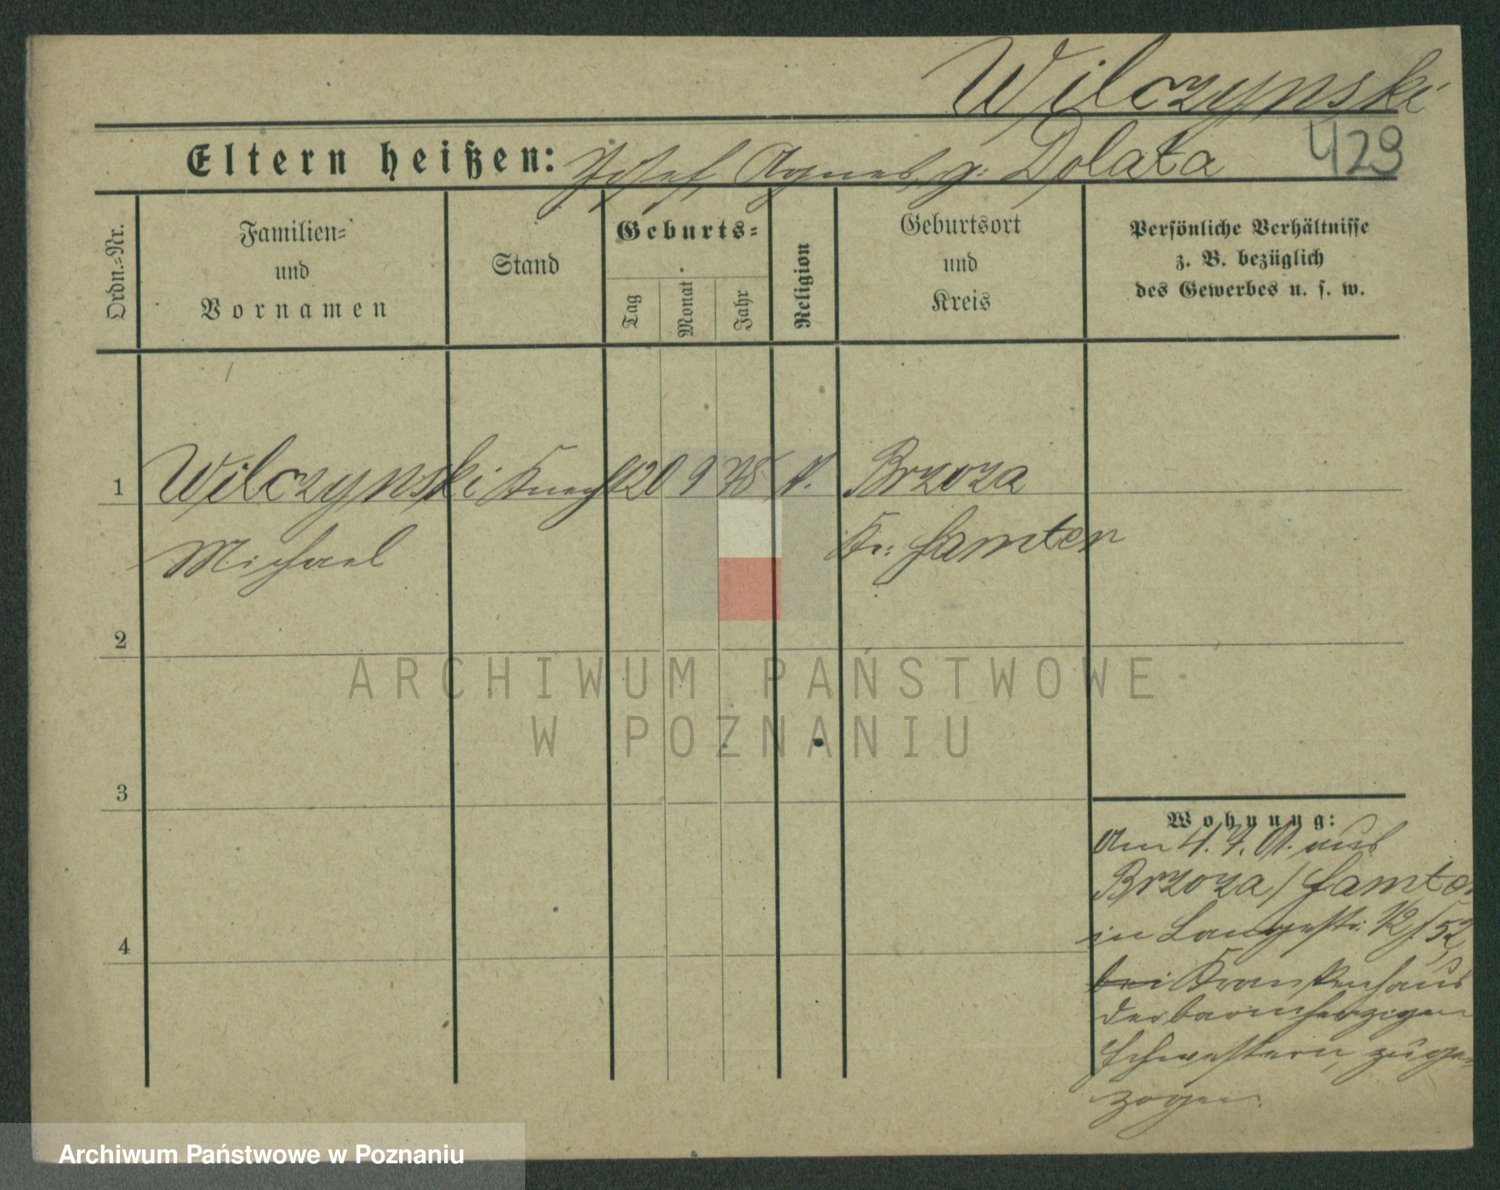 Wilczynski
Eltern heißen: Josef, Agnes, g. Dolata
429
Ordn.-Nr.
Familien-
und
Vornamen
Stand
Geburts-
Tag
Monat
Jahr
Religion
Geburtsort
und
Kreis
Persönliche Verhältnisse
z. B. bezüglich
des Gewerbes u. s. w.
1 Wilczynski Knecht 20 9 78 k. Brzoza
Michael Kr. Samter
2
ARCHIWUM PAŃSTWOWE
W POZNANIU
3
Wohnung:
Am 4. 7. 01. aus
Brzoza / Samter
in Langestr.
bei Krankenhaus
der barmherzigen
Schwestern, zuge-
zogen.
4
Archiwum Państwowe w Poznaniu